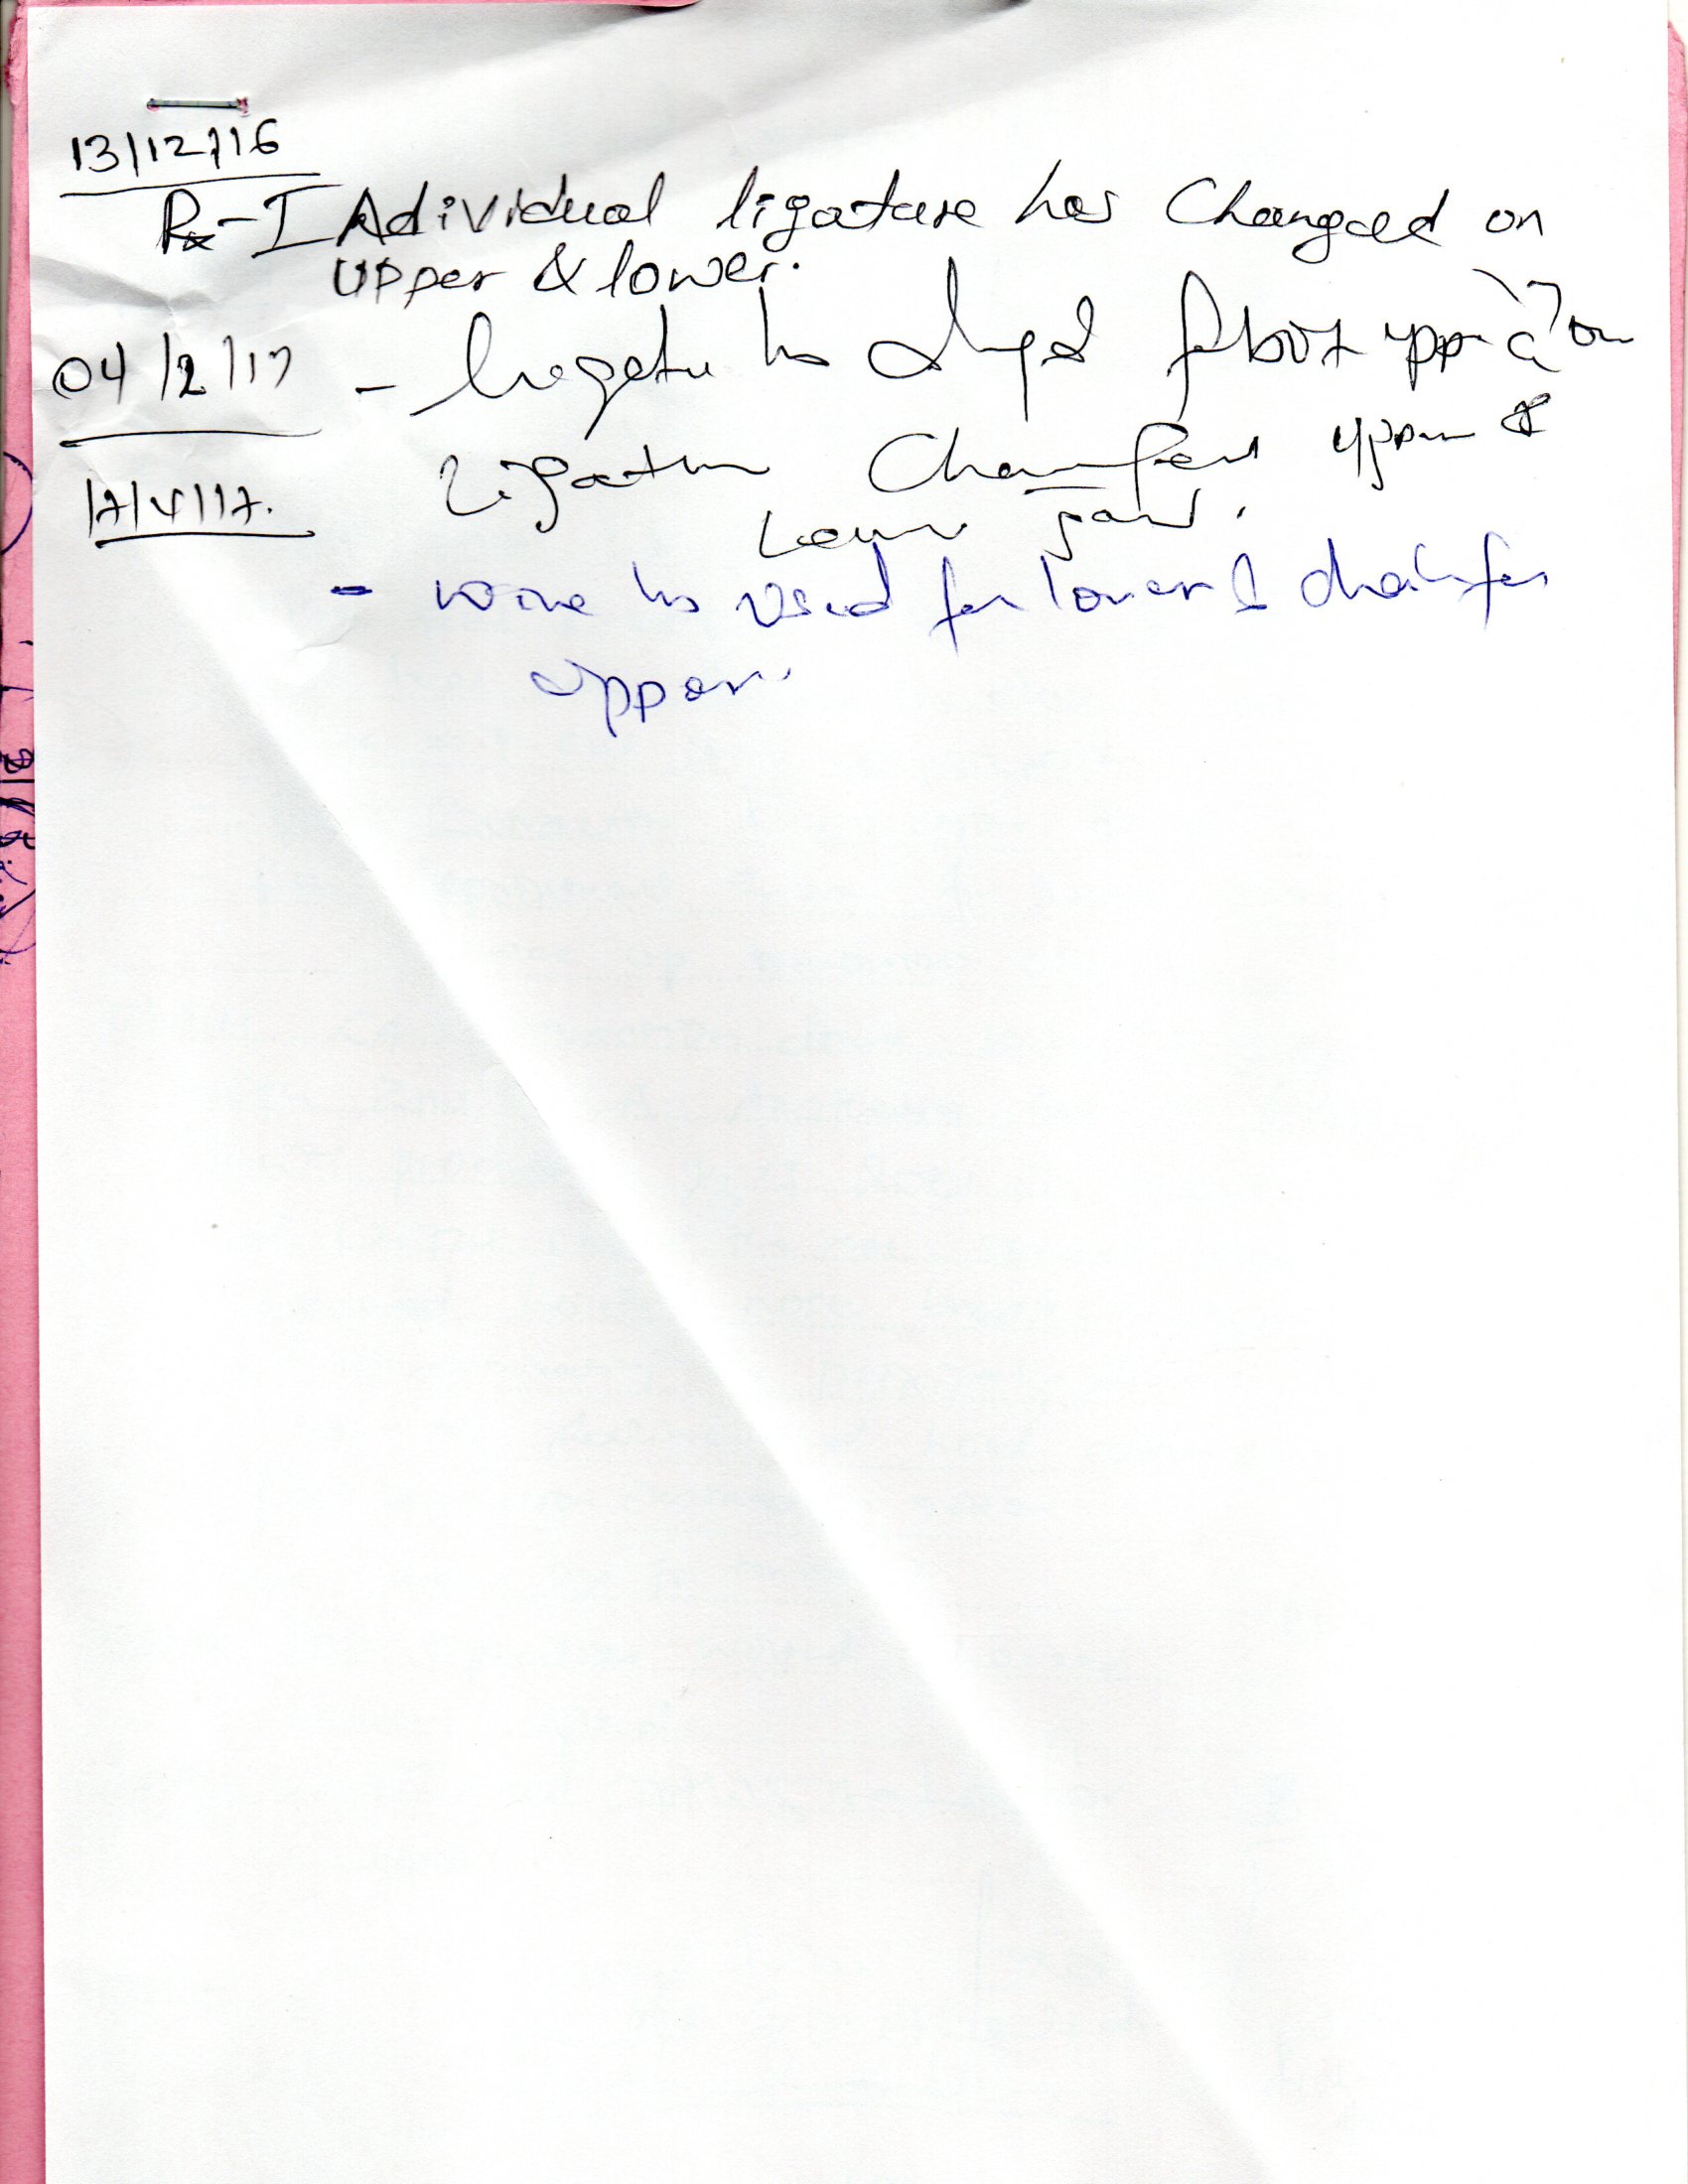 13/12/16
Rx - I Adividual ligature has Changed on
Upper & lower.
04/2/17 - has for both upper
17/4/17. Ligature Changed upper &
Lower
- wire has used for lower & chain for
upper.